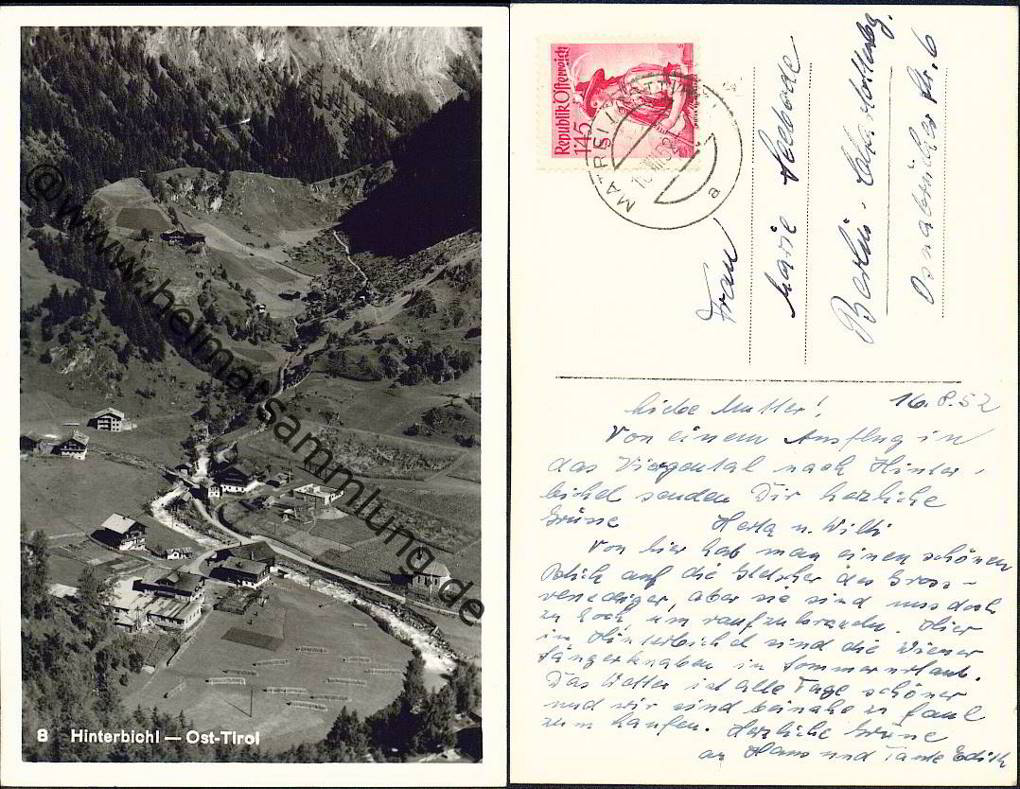 @www.heimatsammlung.de
8 Hinterbichl — Ost-Tirol
Republik Österreich
1'45
MATREI IN OSTTIROL
a
Frau
Marie Seebode
Berlin-Charlottenbg.
Osnabrücker Str. 6
Liebe Mutter! 16.8.52
Von einem Ausflug in
das Virgental nach Hinter-
bichel senden Dir herzliche
Grüsse Herta u. Willi
Von hier hat man einen schönen
Blick auf die Gletscher des Gross-
venediger, aber sie sind uns doch
zu hoch, um raufzukraxeln. Hier
in Hinterbichel sind die Wiener
Sängerknaben in Sommerurlaub.
Das Wetter ist alle Tage schöner
und wir sind beinahe zu faul
zum Laufen. Herzliche Grüsse
an Hans und Tante Edith